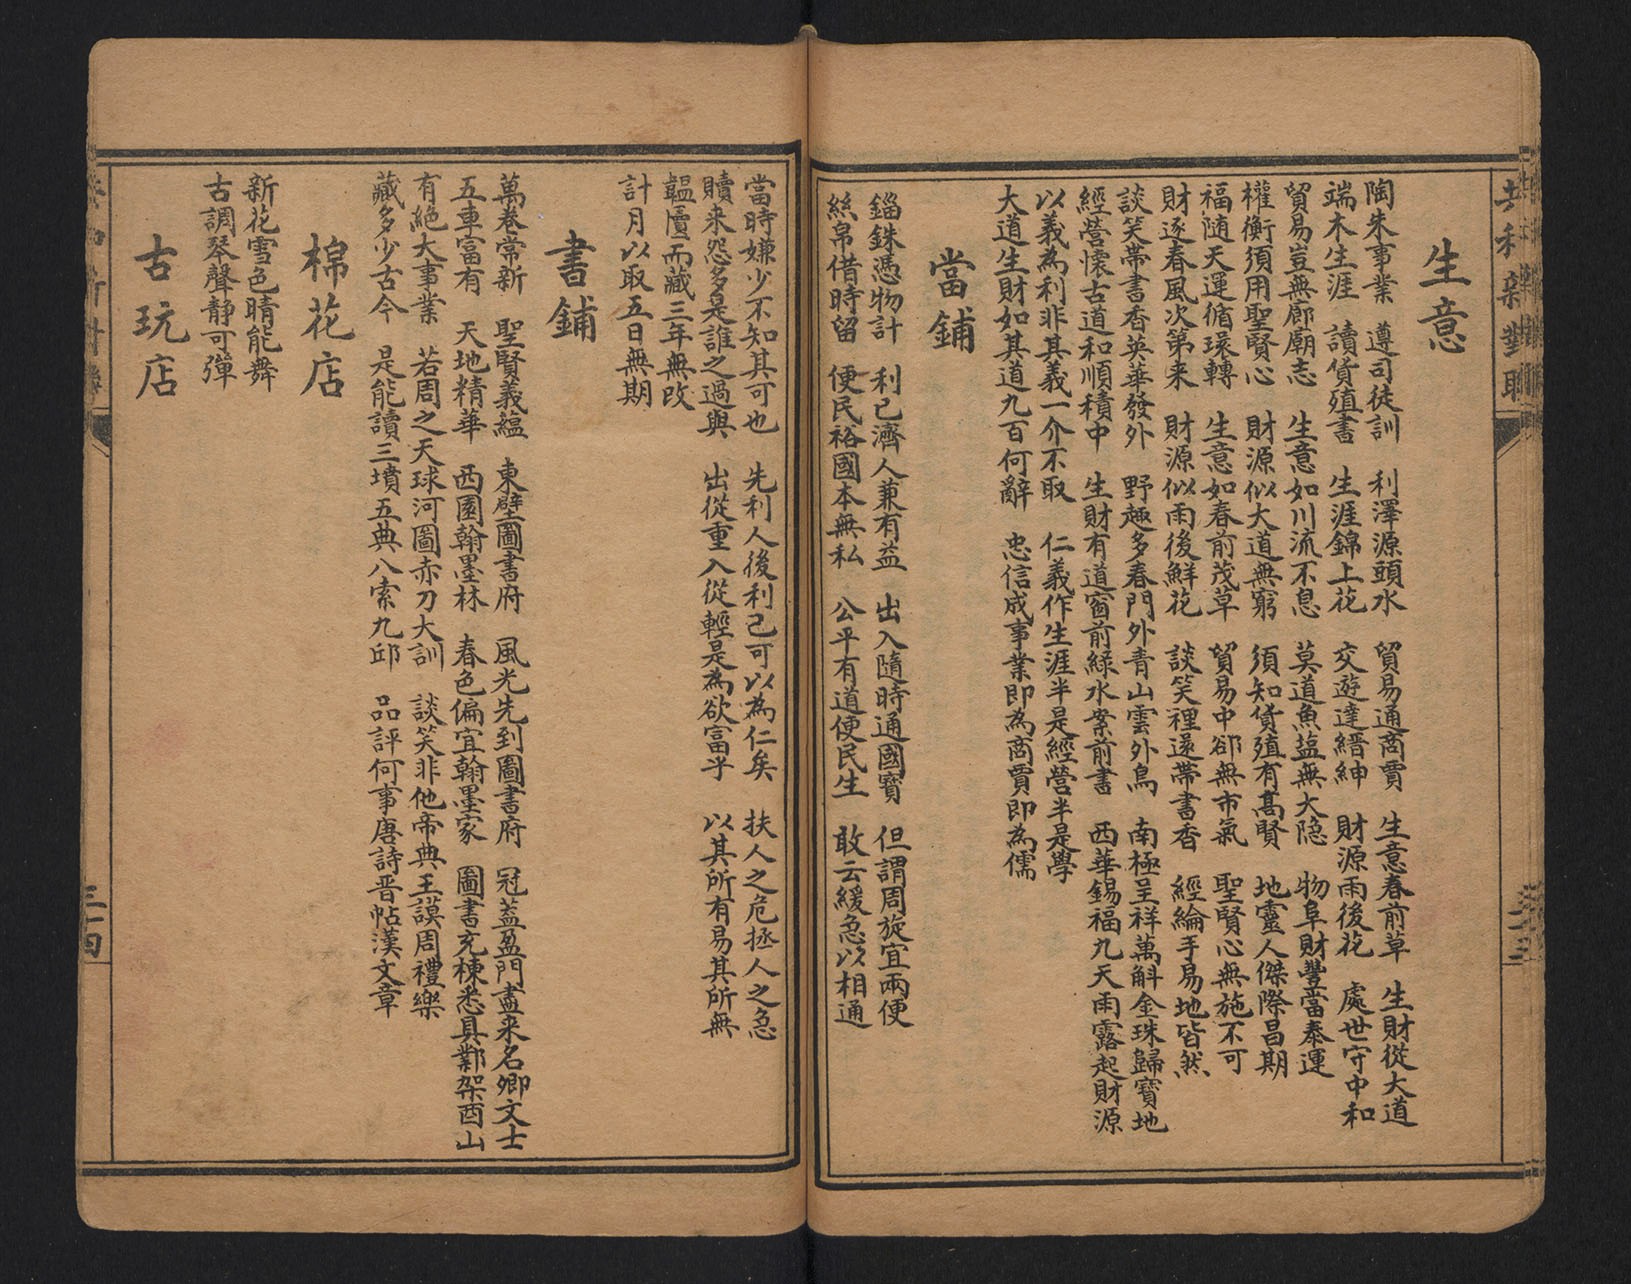 共和新對聯
生意
陶朱事業 遵司徒訓 利澤源頭水 貿易通商賈 生意春前草 生財從大道
端木生涯 讀貨殖書 生涯錦上花 交遊達縉紳 財源雨後花 處世守中和
貿易豈無廊廟志 生意如川流不息 莫道魚塩無大隐 物阜財豐當泰運
權衡須用聖賢心 財源似大道無窮 須知貨殖有髙賢 地靈人傑際昌期
福随天運循環轉 生意如春前茂草 貿易中郤無市氣 聖賢心無施不可
財逐春風次第来 財源似雨後鮮花 談笑裡還帶書香 經綸手易地皆然
談笑帶書香英華發外 野趣多春門外青山雲外鳥 南極呈祥萬斛金珠歸寶地
經營懷古道和順積中 生財有道窗前綠水案前書 西華錫福九天雨露起財源
以義為利非其義一介不取 仁義作生涯半是經營半是學
大道生財如其道九百何辭 忠信成事業即為商賈即為儒
當鋪
錙銖憑物計 利己濟人兼有益 出入隨時通國寳 但謂周旋宜兩便
絲帛借時留 便民裕國本無私 公平有道便民生 敢云緩急以相通
當時嫌少不知其可也 先利人後利己可以為仁矣 扶人之危拯人之急
贖来怨多是誰之過與 出從重入從輕是為欲富乎 以其所有易其所無
韞匵而藏三年無改
計月以取五日無期
書鋪
萬卷常新 聖賢義蘊 東壁圖書府 風光先到圖書府 冠蓋盈門盡来名卿文士
五車富有 天地精華 西園翰墨林 春色偏宜翰墨家 圖書充棟悉具鄴架酉山
有絶大事業 若周之天球河圖赤刀大訓 談笑非他帝典王謨周禮樂
藏多少古今 是能讀三墳五典八索九邱 品評何事唐詩晋帖漢文章
棉花店
新花雪色晴能舞
古調琴聲静可彈
古玩店
三十四